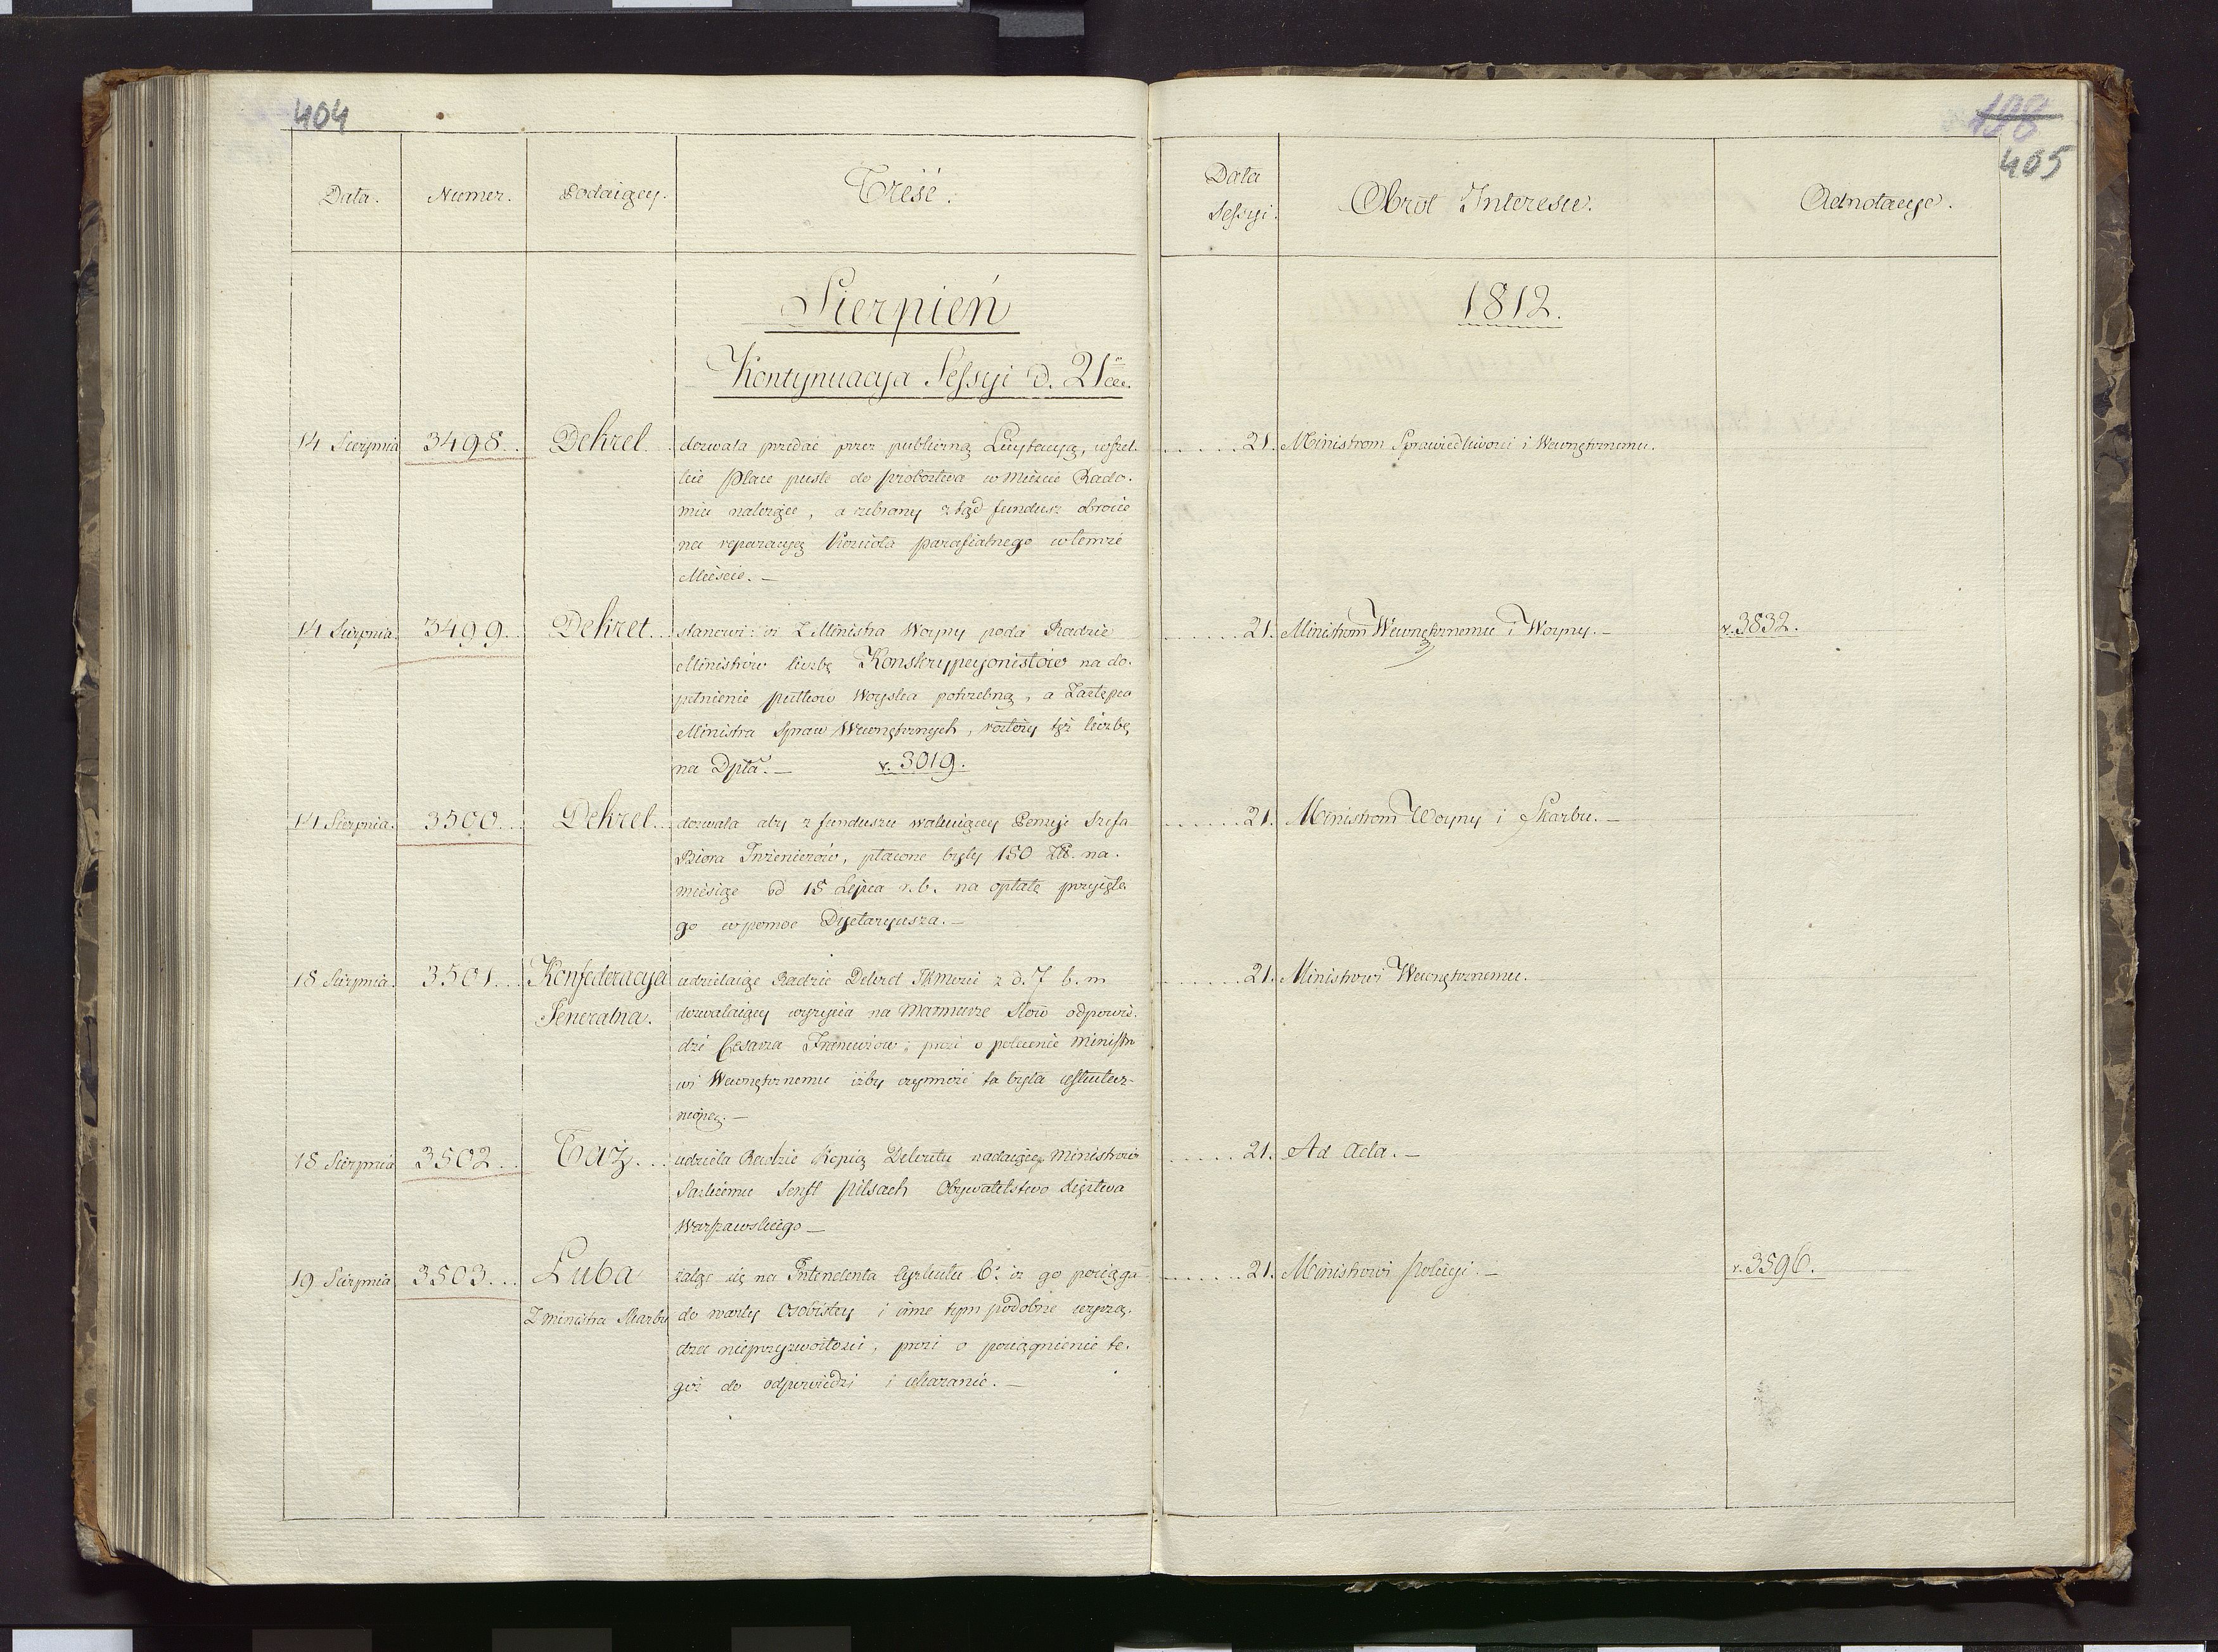 404
Data.
Numer.
Podaiący.
Treść.
Sierpień
Kontynuacya Sessyi D. 21.
14 Sierpnia 3498.. Dekret.. dozwala przedać przez publiczną Licytacyą, wszel-
kie place puste do probostwa w Mieście Rado-
miu należące, a zebrany ztąd fundusz obrócić
na reparacyą kościoła parafialnego w temże
Mieście.—
14 Sierpnia. 3499.. Dekret.. stanowi: iż Z Ministra Woyny poda Radzie
Ministrów liczbę Konskrypcyonistów na do-
pełnienie pułków Woyska potrzebną, a Zastępca
Ministra Spraw Wewnętrznych, rozłoży tęż liczbę
na Dpta.— v. 3019.
14 Sierpnia. 3500.. Dekret.. dozwala aby z funduszu wakuiącey Pensyi Szefa
Biora Inżenierów, płacone były 150 Zł. na-
miesiąc od 15 Lipca r.b. na opłatę przyięte-
go w pomoc Dyetaryusza.—
18 Sierpnia. 3501.. Konfederacya udzielaiąc Radzie Dekret JKMości z d. 7 b.m
Generalna. dozwalaiący wyrycia na Marmurze słów odpowie-
dzi Cesarza Francuzów; prosi o polecenie Ministro
wi Wewnętrznemu iżby czynność ta była uskutecz-
nioną.—
18 Sierpnia 3502.. Taż... udziela Radzie Kopią Dekretu nadaiącego Ministrowi
Saskiemu Senft Pilsach Obywatelstwo Księstwa
Warszawskiego—
19 Sierpnia 3503... Łuba żaląc się na Intendenta Cyrkułu 6. iż go pociąga
Z Ministra Skarbu do warty osobistey i inne tym podobne wyrzą-
dza nieprzyzwoitości, prosi o pociągnienie te-
goż do odpowiedzi i ukaranie.—
198
405
Data
Sessyi.
Obrót Interesu.
Adnotacye.
1812.
.....21. Ministrom Sprawiedliwości i Wewnętrznemu.
.....21. Ministrom Wewnętrznemu i Woyny.— v. 3832.
.....21. Ministrom Woyny i Skarbu.—
.....21. Ministrowi Wewnętrznemu.
.....21. Ad Acta.—
.....21. Ministrowi Policyi.— v. 3596.